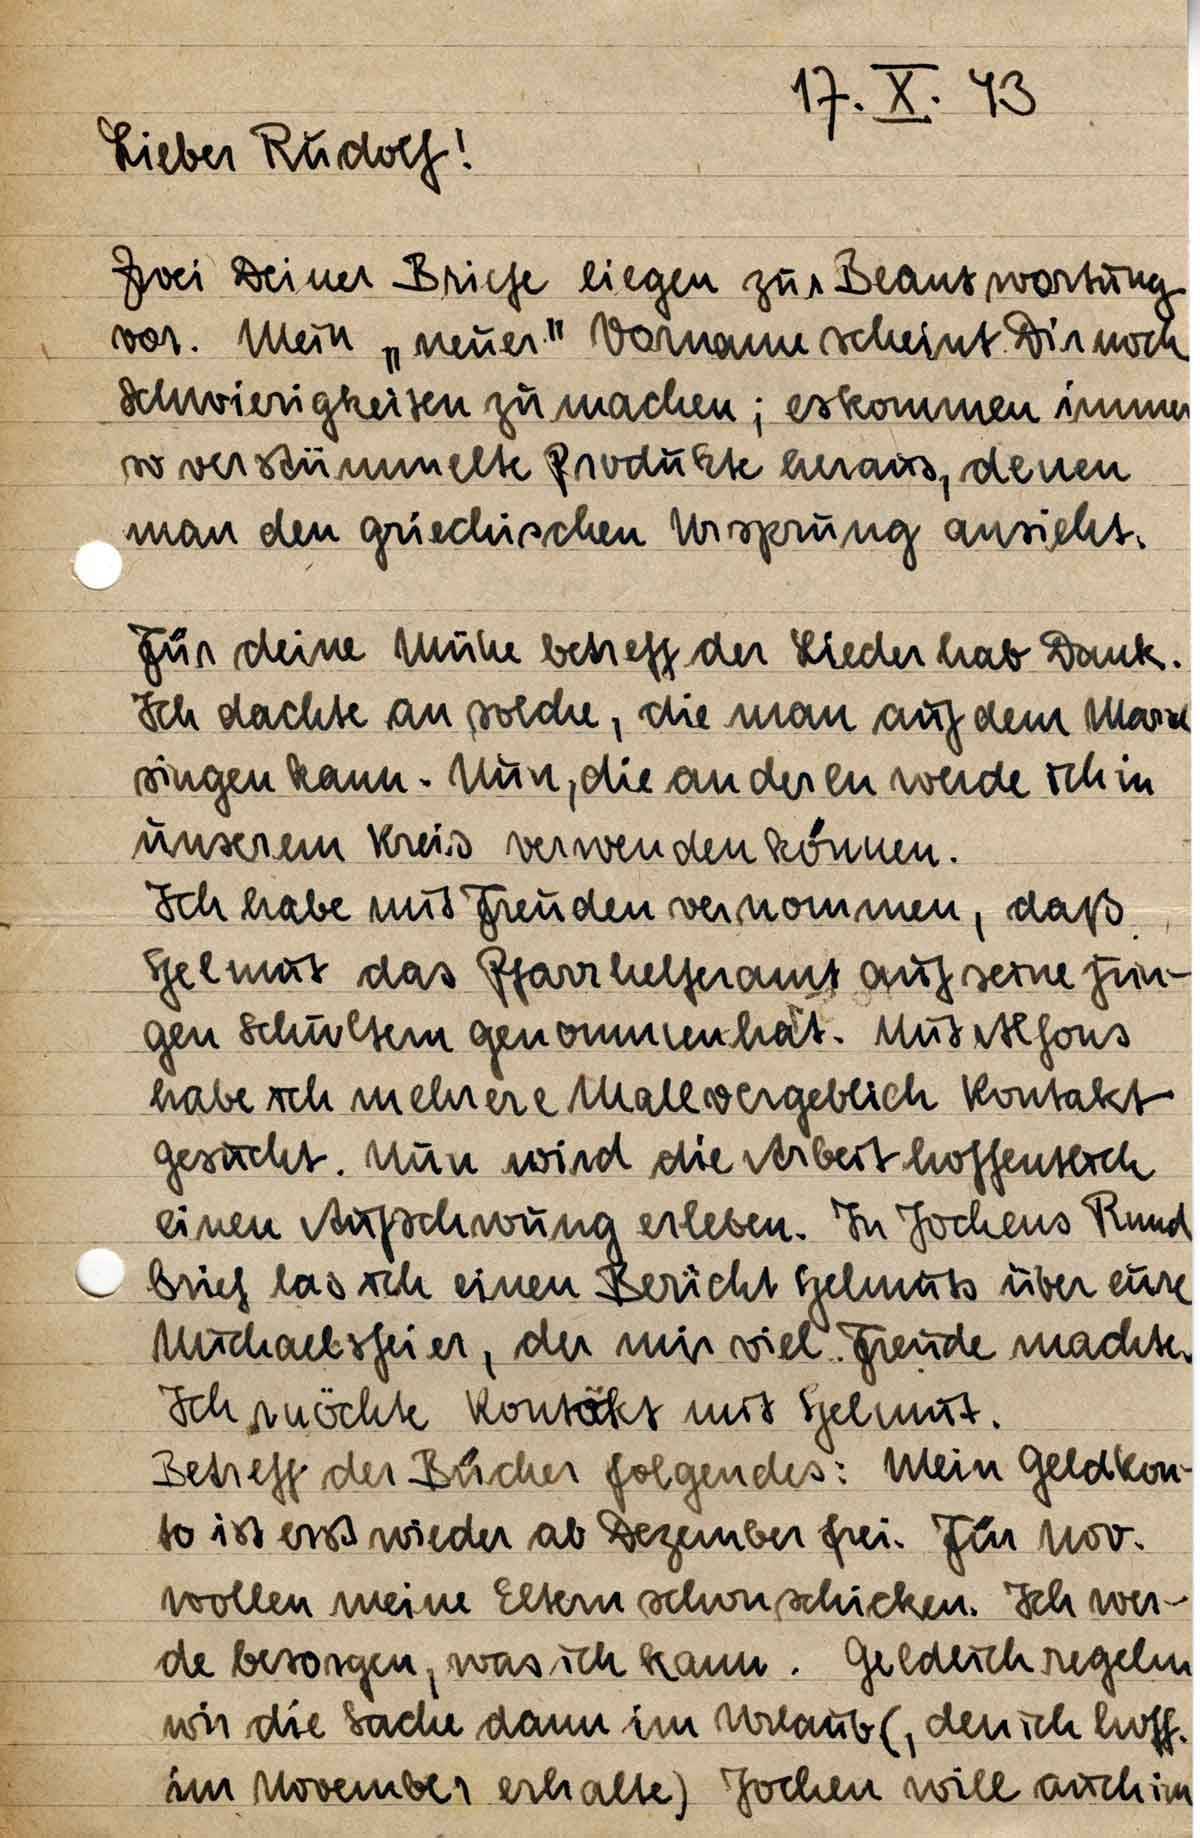 17. X. 43
Lieber Rudolf!
Zwei Deiner Briefe liegen zur Beantwortung
vor. Mein „neuer" Vorname scheint Dir noch
Schwierigkeiten zu machen; es kommen immer
so verstümmelte Produkte heraus, denen
man den griechischen Ursprung ansieht.
Für deine Mühe betreff der Lieder hab Dank.
Ich dachte an solche, die man auf dem Marsch
singen kann. Nun, die anderen werde ich in
unserem Kreis verwenden können.
Ich habe mit Freuden vernommen, daß
Helmut das Pfarrhelferamt auf seine jun-
gen Schultern genommen hat. Mit Alfons
habe ich mehrere Male vergeblich Kontakt
gesucht. Nun wird die Arbeit hoffentlich
einen Aufschwung erleben. In Jochens Rund
brief las ich einen Bericht Helmuts über eure
Michaelsfeier, der mir viel Freude machte.
Ich möchte Kontakt mit Helmut.
Betreff der Bücher folgendes: Mein Geldkon-
to ist erst wieder ab Dezember frei. Für Nov.
wollen meine Eltern schon schicken. Ich wer-
de besorgen, was ich kann. Geldlich regeln
wir die Sache dann im Urlaub (, den ich hoff.
im November erhalte) Jochen will auch im